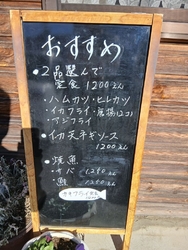 おすすめ
•2品選んで
定食 1200えん
・ハムカツ・ヒレカツ
・イカフライ・唐揚(2コ)
・アジフライ
•イカ天辛ギソース
1200えん
•焼魚
・サバ 1280えん
・鮭